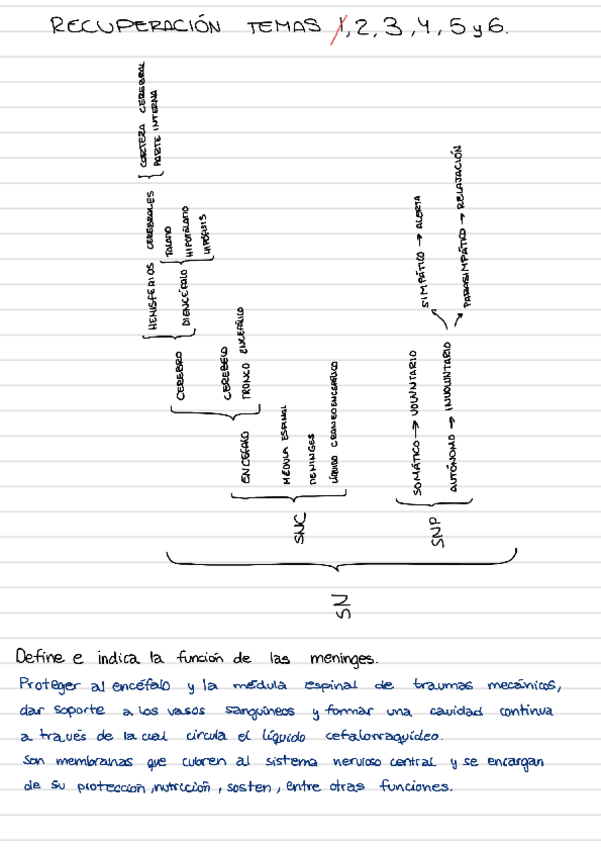 RECUPERACIÓN TEMAS 1, 2, 3, 4, 5 y 6.
SN
SNC
ENCÉFALO
CEREBRO
HEMISFERIOS CEREBRALES
CORTEZA CEREBRAL
PARTE INTERNA
DIENCÉFALO
TÁLAMO
HIPOTÁLAMO
HIPÓFISIS
CEREBELO
TRONCO ENCEFÁLICO
MÉDULA ESPINAL
MENINGES
LÍQUIDO CRANEOENCEFÁLICO
SNP
SOMÁTICO → VOLUNTARIO
AUTÓNOMO → INVOLUNTARIO
SIMPÁTICO → ALERTA
PARASIMPÁTICO → RELAJACIÓN
Define e indica la función de las meninges.
Proteger al encéfalo y la médula espinal de traumas mecánicos,
dar soporte a los vasos sanguíneos y formar una cavidad continua
a través de la cual circula el líquido cefalorraquídeo.
Son membranas que cubren al sistema nervioso central y se encargan
de su protección, nutrición, sosten, entre otras funciones.